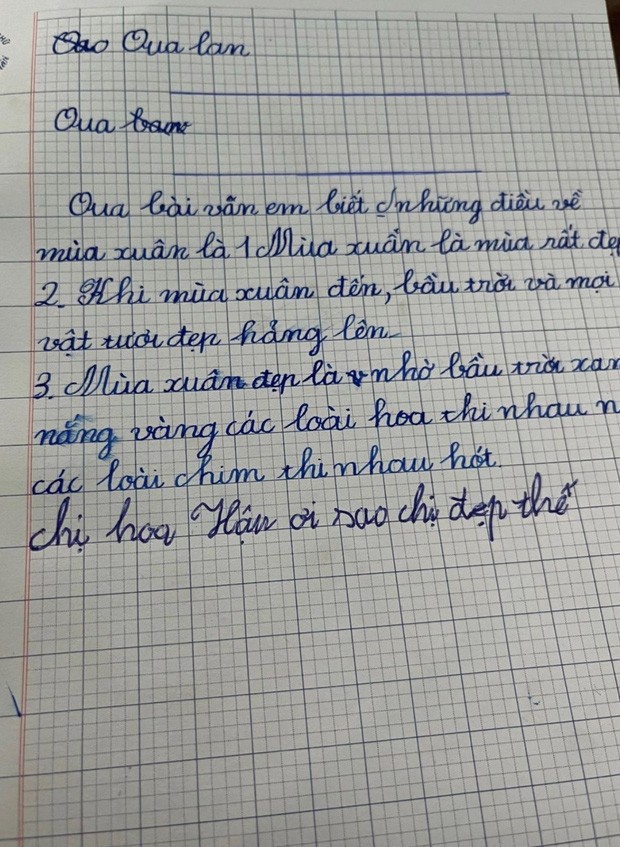 Oao Qua lan
Qua tram
Qua bài văn em biết những điều về
mùa xuân là 1 Mùa xuân là mùa rất đẹ
2. Khi mùa xuân đến, bầu trời và mọi
vật tươi đẹp hẳng lên
3. Mùa xuân đẹp là nhờ bầu trời xan
nắng vàng các loài hoa thi nhau n
các loài chim thi nhau hót.
chị hoa Hậu ơi sao chị đẹp thế